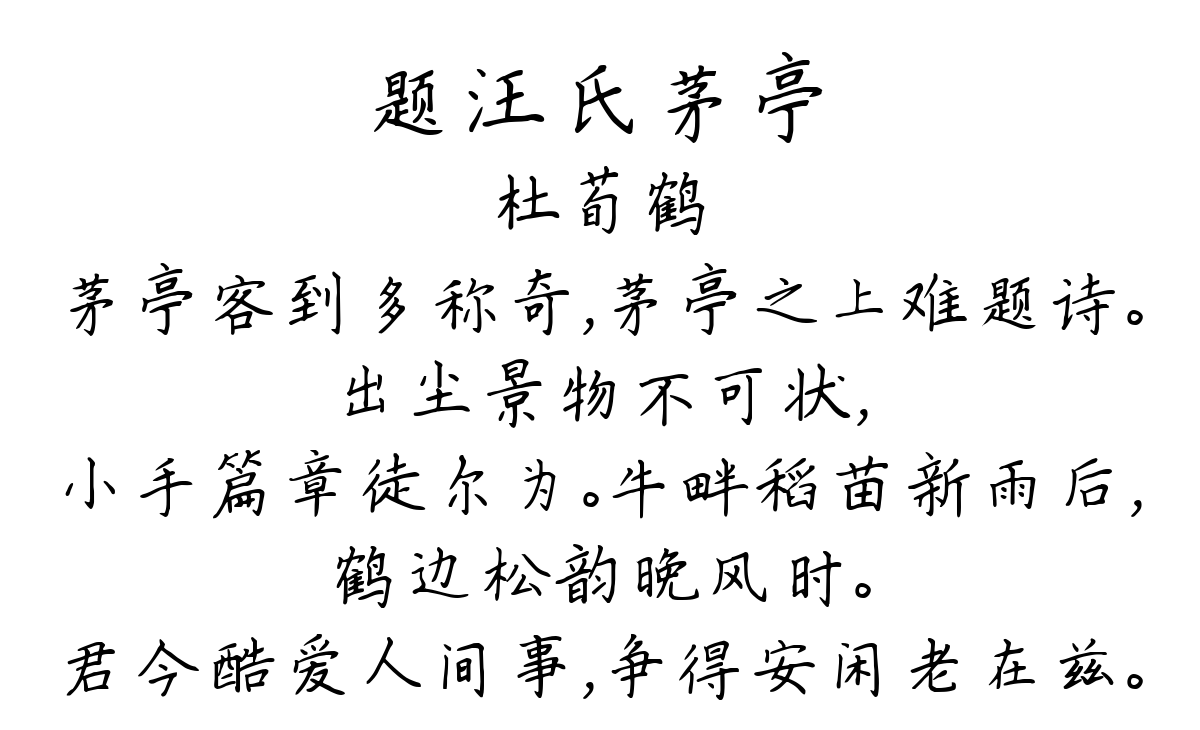 题汪氏茅亭
杜荀鹤
茅亭客到多称奇,茅亭之上难题诗。
出尘景物不可状,
小手篇章徒尔为。牛畔稻苗新雨后,
鹤边松韵晚风时。
君今酷爱人间事,争得安闲老在兹。